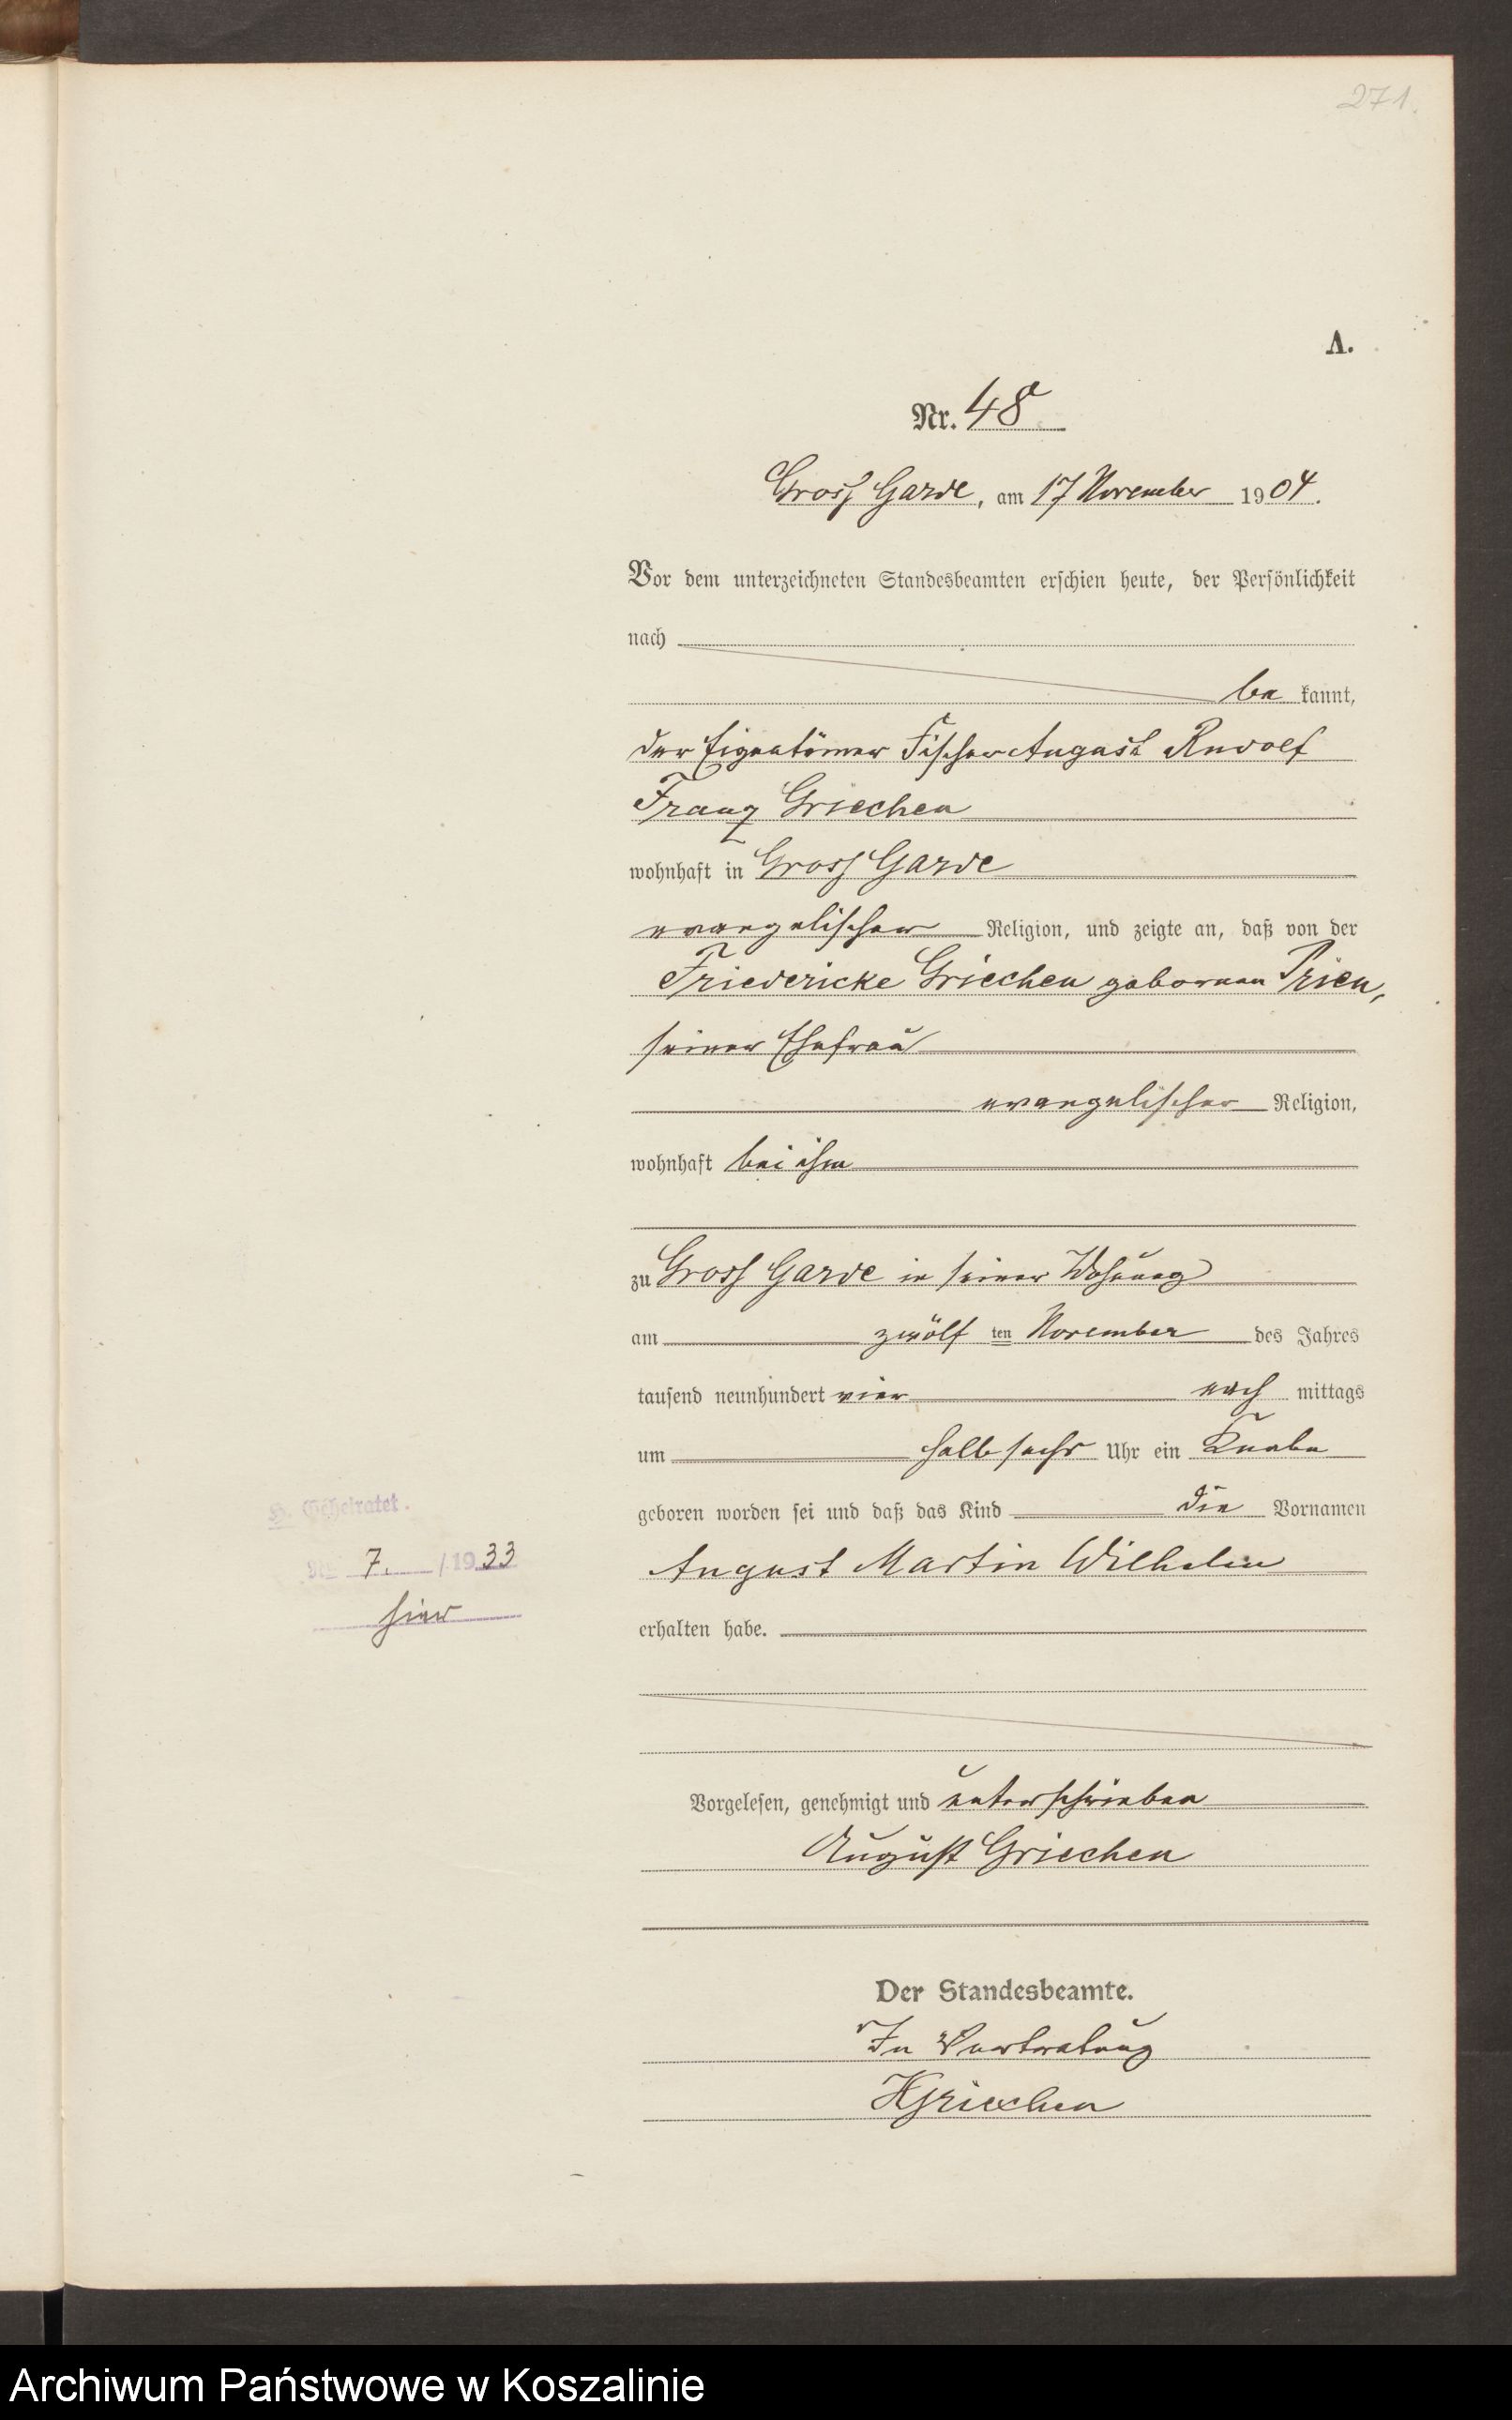 271.
A.
Nr. 48
Gross Garde, am 17 November 1904.
Vor dem unterzeichneten Standesbeamten erschien heute, der Persönlichkeit
nach
be kannt,
der Eigentümer Fischer August Rudolf
Franz Griechen
wohnhaft in Gross Garde
evangelischer Religion, und zeigte an, daß von der
Friedericke Griechen geborenen Prien,
seiner Ehefrau
evangelischer Religion,
wohnhaft bei ihm
zu Gross Garde in seiner Wohnung
am zwölf ten November des Jahres
tausend neunhundert vier nach mittags
um halb sechs Uhr ein Knabe
geboren worden sei und daß das Kind die Vornamen
H. Geheiratet.
Nr 7. /1933
August Martin Wilhelm
hier
erhalten habe.
Vorgelesen, genehmigt und unterschrieben
August Griechen
Der Standesbeamte.
In Vertretung
HGriechen
Archiwum Państwowe w Koszalinie